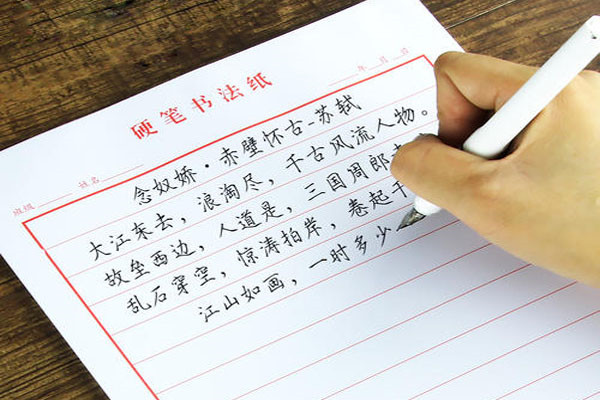 硬笔书法纸
年 月 日
班级 姓名
念奴娇·赤壁怀古-苏轼
大江东去，浪淘尽，千古风流人物。
故垒西边，人道是，三国周郎
乱石穿空，惊涛拍岸，卷起千
江山如画，一时多少